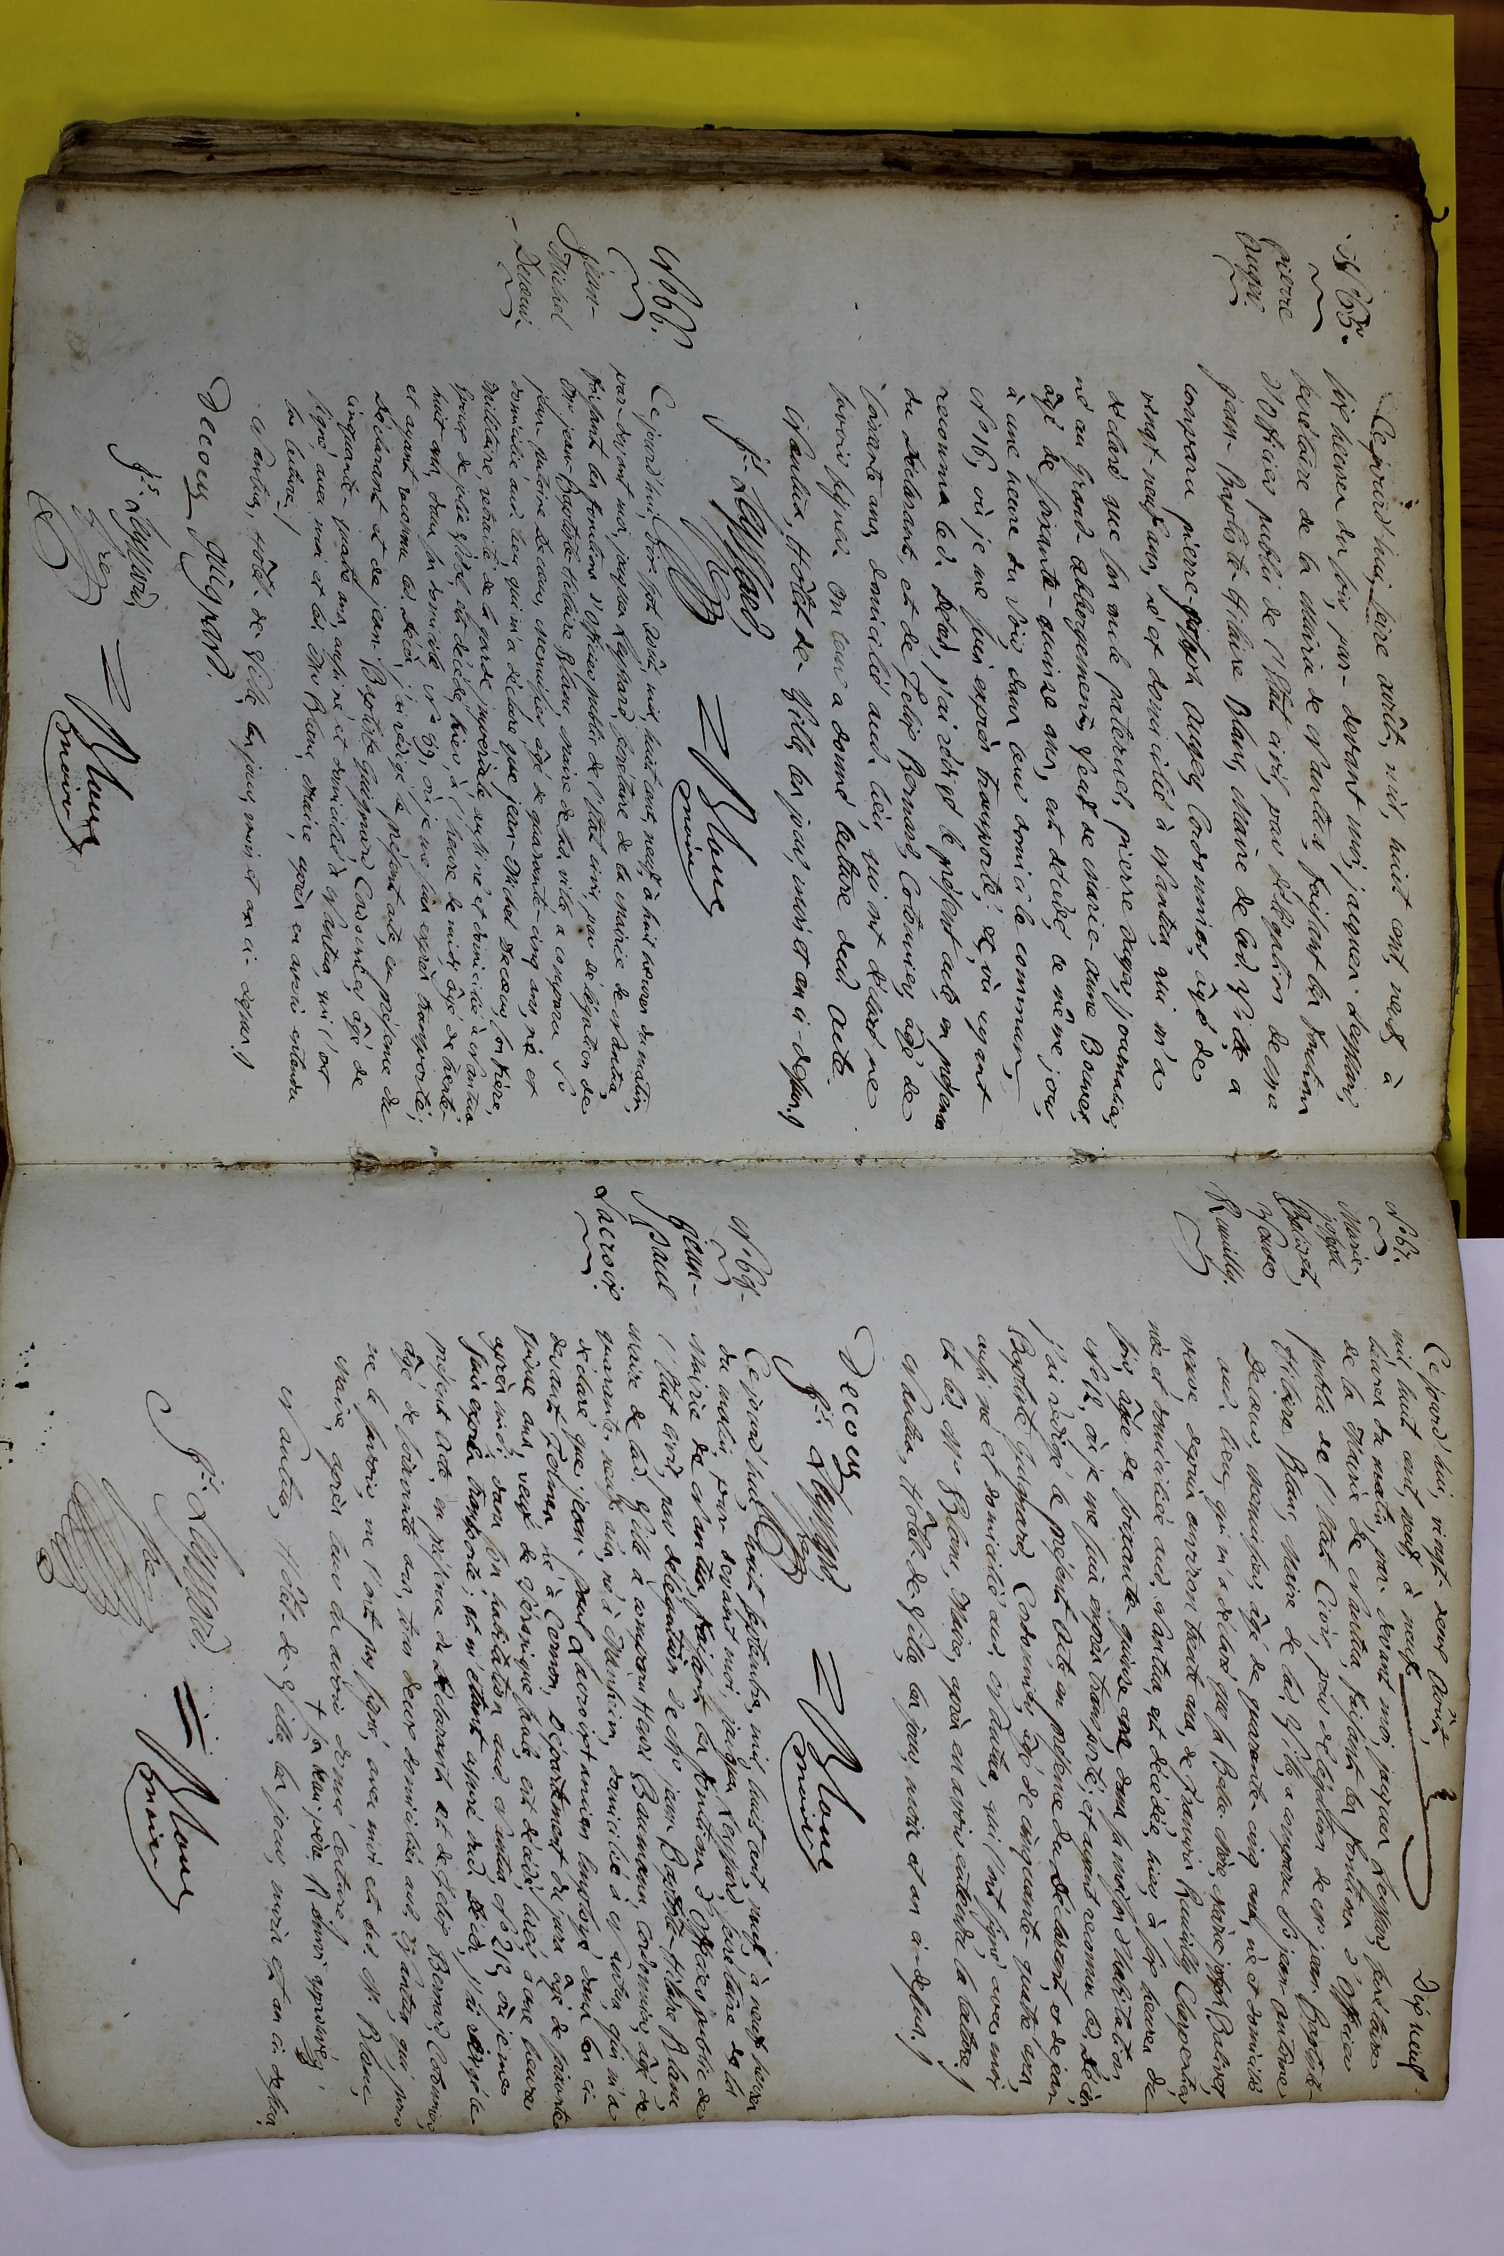 N° 65.
Pierre
Augey.
Ce jourd'hui, seize août, mil, huit cent, neuf, à
six heures du soir, par-devant moi, jacques Leyssard,
secrétaire de la mairie de Nantua, faisant les fonctions
d'officier public de l'état civil, par délégation de mr
jean-Baptiste-Hilaire Blanc, Maire de lad. Ville a
comparu pierre-joseph Augey, Cordonnier, âgé de
vingt-neuf ans, né et domicilié à Nantua, qui m'a
déclaré que son oncle paternel, pierre Augey, journalier,
né au Grand-abbergement, veuf de Marie-Anne Bonnet,
âgé de soixante-quinze ans, est décédé, ce même jour,
à une heure du soir, dans leur domicile commun,
N° 16, où je me suis exprès transporté, et, où ayant
reconnu led. Décès, j'ai rédigé le présent acte, en présence
du Déclarant, et de Felix Bernard, Cotonnier, âgé de
soixante ans, domicilié aud. lieu, qui ont déclaré ne
savoir signer. On leur a donné lecture dud. acte.
Nantua, Hôtel de Ville, les jour, mois et an ci-dessus./
Js. Leyssard,
Sre
= Blanc
maire
N° 66.
Jean-
Michel
Decoeur.
Ce jourd'hui, dix-sept août, mil, huit cent, neuf, à huit heures du matin,
par-devant moi, jacques Leyssard, secrétaire de la mairie de Nantua,
faisant les fonctions d'officier public de l'état civil, par délégation de
Mr jean-Baptiste-Hilaire Blanc, maire de lad. ville, a comparu Sr
jean-antoine Decoeur, menuisier, âgé de quarante-cinq ans, né et
domicilié aud. lieu, qui m'a déclaré que jean-Michel Decoeur, son frère,
militaire, retraité de la garde impériale, aussi né et domicilié à Nantua
époux de julie est décédé, hier, à l'heure de midi, âgé de trente-
huit ans, dans son domicile N° 39, où je me suis exprès transporté;
et ayant reconnu led. Décès, j'ai rédigé le présent acte, en présence du
Déclarant et de jean-Baptiste Guignard, Cordonnier, âgé de
cinquante-quatre ans, aussi né et domicilié à Nantua, qui l'ont
signé, avec moi et led. Mr Blanc, Maire, après en avoir entendu
la lecture./
Nantua, Hôtel-de-Ville, les jour, mois et an ci-dessus./
Decoeur guignard.
Js. Leyssard,
Sre
= Blanc
maire
Dix neuf.
N° 67.
Marie-
joseph
Balivet,
Veuve
Ruailly.
Ce jourd'hui, vingt-deux Août,
mil, huit cent, neuf, à neuf
heures du matin, par-devant moi jacques Leyssard, secrétaire
de la Mairie de Nantua, faisant les fonctions d'officier
public de l'état Civil, par délégation de mr jean-Baptiste-
Hilaire Blanc, Maire de lad. Ville, a comparu Sr jean-antoine
Decoeur, menuisier, âgé de quarante-cinq ans, né et domicilié
aud. lieu, qui m'a déclaré que sa Belle-mère, Marie-joseph Balivet,
veuve depuis environ trente ans, de françois Ruailly, Charpentier,
née et domiciliée aud. Nantua, est décédée, hier, à six heures du
soir, âgée de soixante-quinze ans, dans sa maison d'habitation,
où je me suis exprès transporté; et ayant reconnu led. Décès,
j'ai rédigé le présent Acte, en présence du Déclarant, et de jean-
Baptiste Guignard, Cordonnier, âgé de cinquante-quatre ans,
aussi né et domicilié aud. Nantua, qui l'ont signé avec moi
et led. Mr Blanc, Maire, après en avoir entendu la lecture./
Nantua, Hôtel-de-Ville, les jour, mois et an ci-dessus./
Decoeur
Js. Leyssard,
Sre
= Blanc
maire
N° 68.
Jean-
Paul
Lacroix.
Ce jourd'hui, huit septembre, mil, huit cent, neuf, à neuf heures
du matin, par-devant moi, jacques Leyssard, secrétaire de la
Mairie de Nantua, faisant les fonctions d'officier public de
l'état civil, par délégation de mr jean-Baptiste-Hilaire Blanc
maire de lad. Ville a comparu Henri Cordonnier, âgé de
quarante-neuf ans, né à domicilié à Nantua, qui m'a
déclaré, que jean-paul Lacroix, ancien dans les ci-
devant né à Cormoz, Département du jura, âgé de soixante
quinze ans, veuf de est décédé, hier, à une heure
après-midi, dans son habitation aud. Nantua, N° 212, où je me
suis exprès transporté; et m'étant assuré dud. Décès, j'ai rédigé le
présent acte, en présence du Déclarant et de Felix Bernard, Cotonnier,
âgé de soixante ans, tous deux domiciliés aud. Nantua, qui, pour
ne le savoir, ne l'ont pas signé, avec moi et led. Mr Blanc,
Maire, après leur en avoir donné lecture./
Nantua, Hôtel-de-Ville, les jour, mois et an ci-dessus.
Js. Leyssard,
Sre
= Blanc
maire